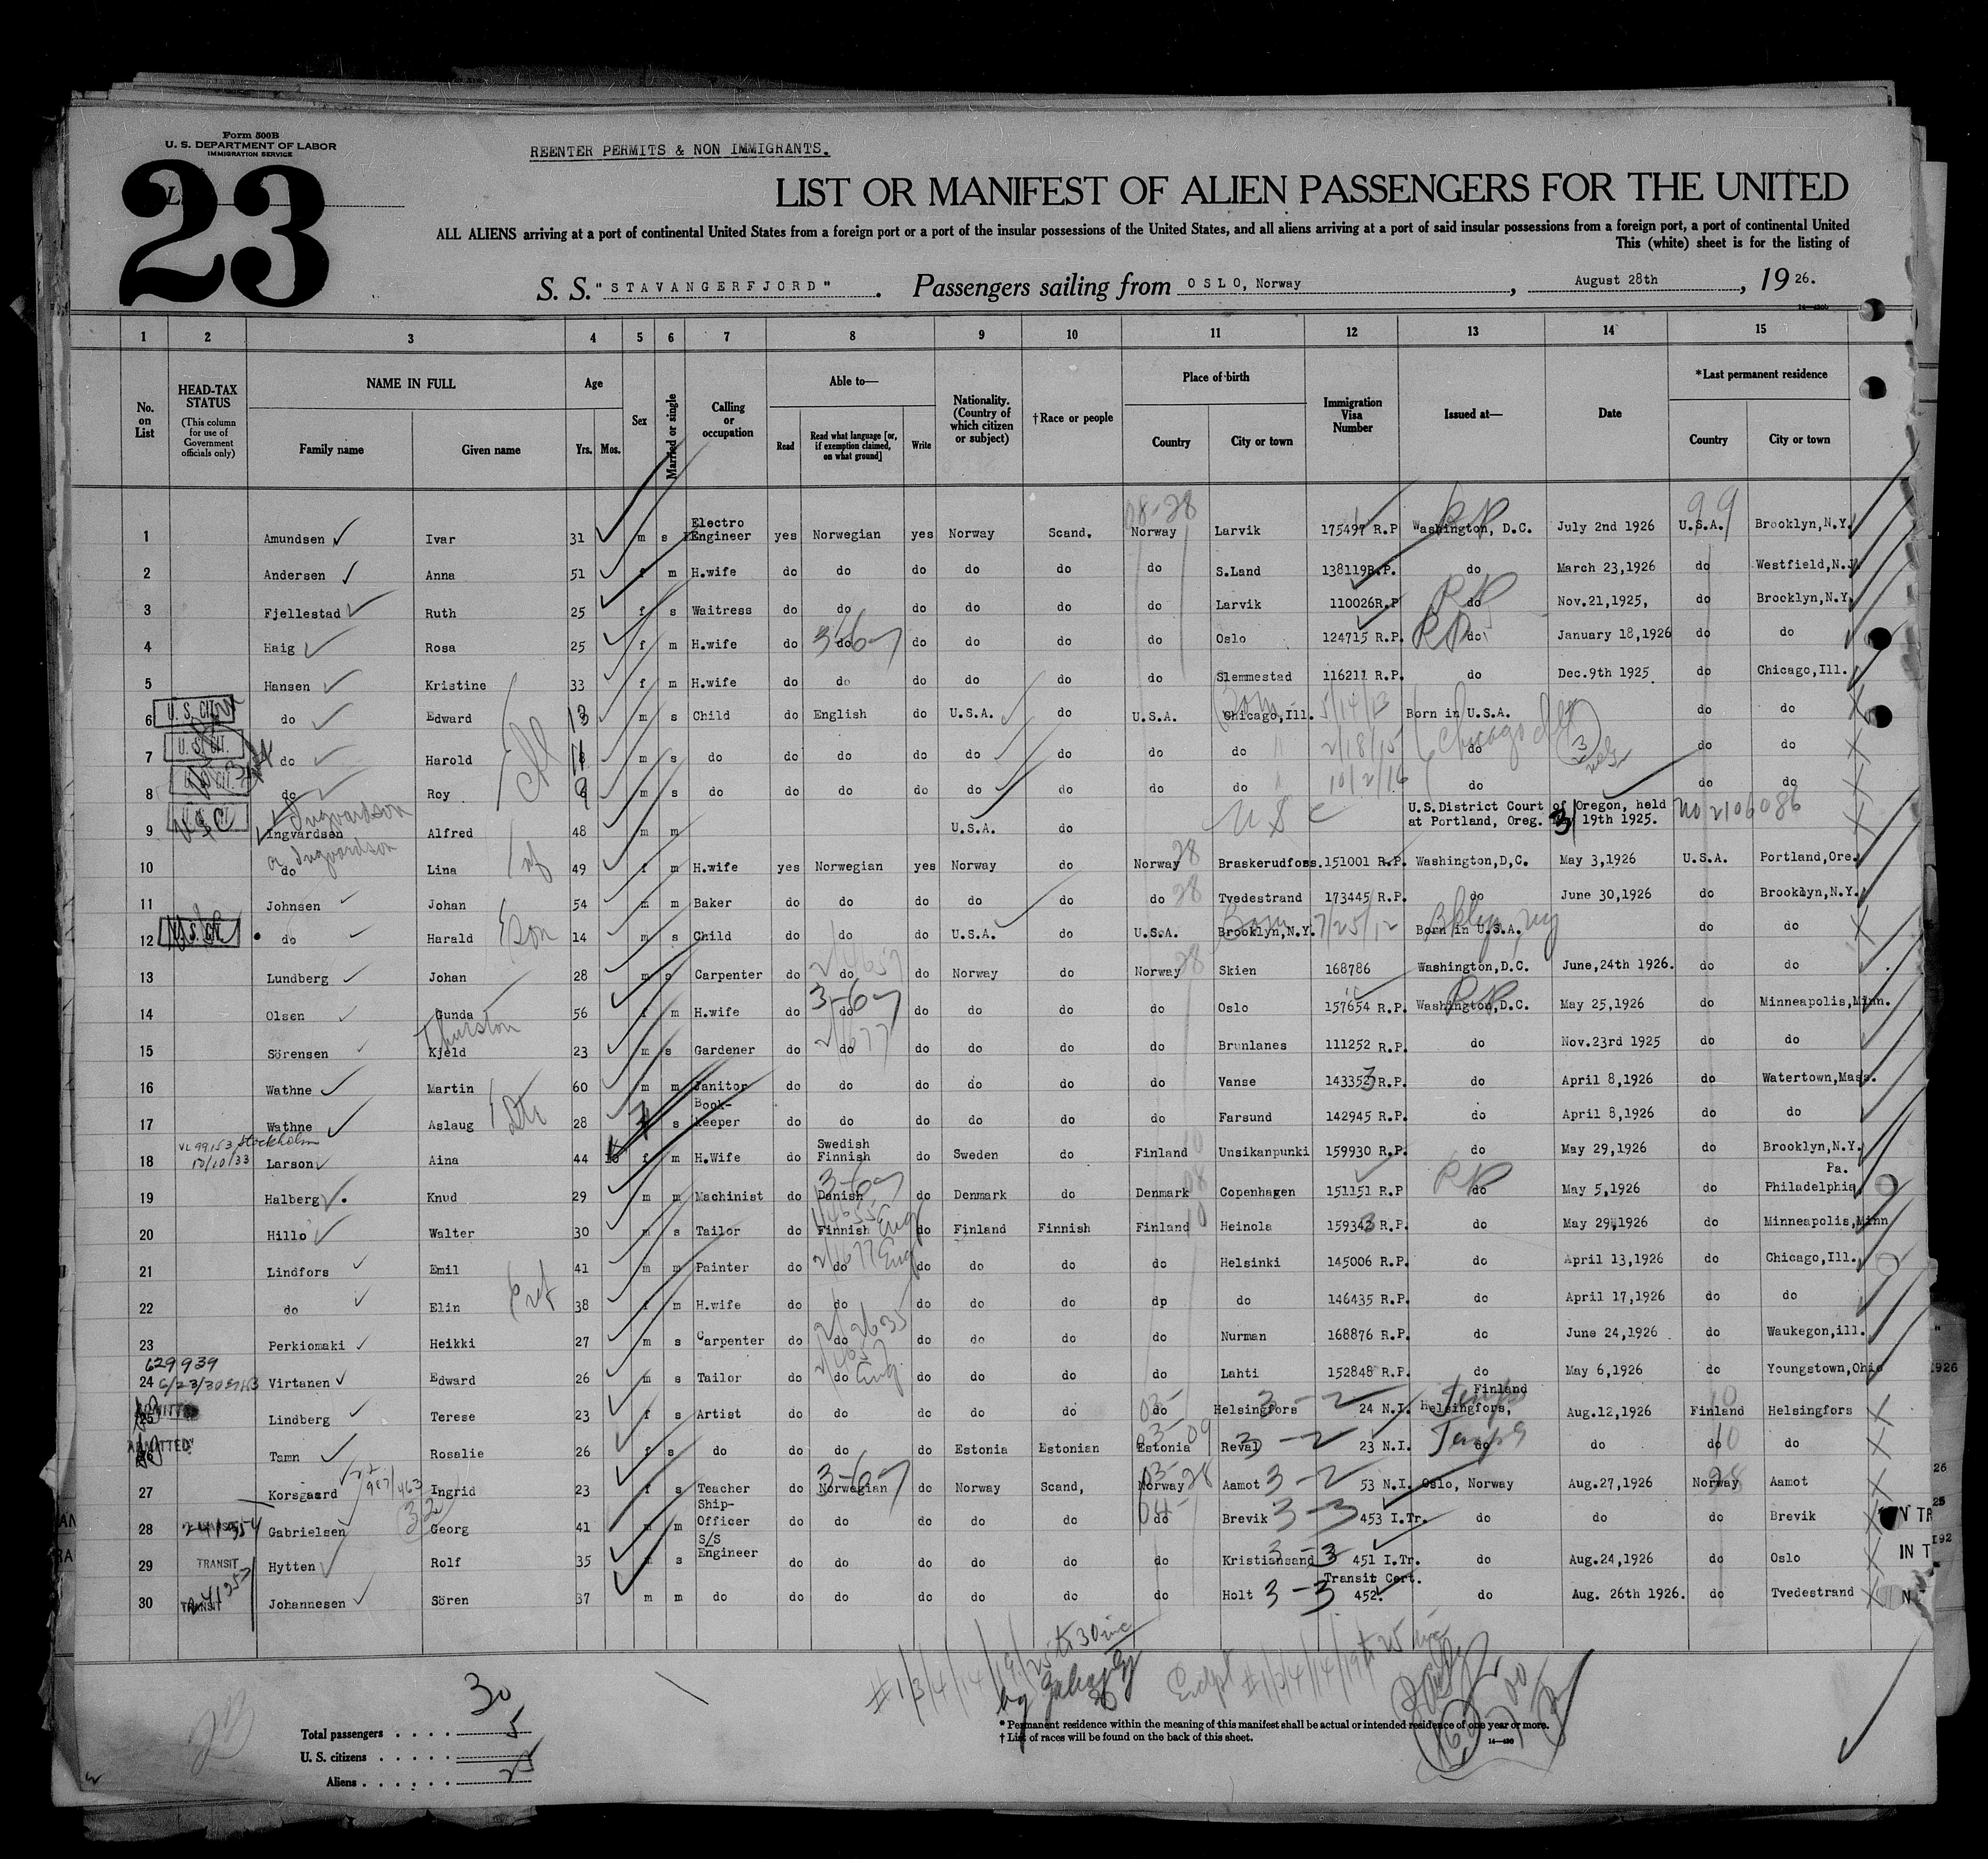 Form 500B
U. S. DEPARTMENT OF LABOR
IMMIGRATION SERVICE
23
REENTER PERMITS & NON IMMIGRANTS.
LIST OR MANIFEST OF ALIEN PASSENGERS FOR THE UNITED
ALL ALIENS arriving at a port of continental United States from a foreign port or a port of the insular possessions of the United States, and all aliens arriving at a port of said insular possessions from a foreign port, a port of continental United
This (white) sheet is for the listing of
S. S. "STAVANGERFJORD". Passengers sailing from OSLO, Norway, August 28th, 1926.
1 2 3 4 5 6 7 8 9 10 11 12 13 14 15
No. on List
HEAD-TAX STATUS
(This column for use of Government officials only)
NAME IN FULL
Family name Given name
Age
Yrs. Mos.
Sex
Married or single
Calling or occupation
Able to—
Read
Read what language [or, if exemption claimed, on what ground]
Write
Nationality. (Country of which citizen or subject)
†Race or people
Place of birth
Country City or town
Immigration Visa Number
Issued at—
Date
*Last permanent residence
Country City or town
1 Amundsen Ivar 31 m s Electro Engineer yes Norwegian yes Norway Scand. Norway Larvik 175497 R.P Washington, D.C. July 2nd 1926 U.S.A. Brooklyn,N.Y.
2 Andersen Anna 51 f m H.wife do do do do do do S.Land 138119R.P. do March 23,1926 do Westfield,N.J.
3 Fjellestad Ruth 25 f s Waitress do do do do do do Larvik 110026R.P do Nov.21,1925, do Brooklyn,N.Y.
4 Haig Rosa 25 f m H.wife do do do do do do Oslo 124715 R.P. do January 18,1926 do do
5 Hansen Kristine 33 f m H.wife do do do do do do Slemmestad 116211 R.P. do Dec.9th 1925 do Chicago,Ill.
6 U. S. CIT. do Edward 13 m s Child do English do U.S.A. do U.S.A. Chicago,Ill. 5/14/13 Born in U.S.A. do do
7 U. S. CIT. do Harold 11 m s do do do do do do do do 2/18/15 do do do
8 U. S. CIT. do Roy 9 m s do do do do do do do do 10/2/16 do do do
9 Ingvardsen Alfred 48 m m U.S.A. do U S C U.S.District Court of Oregon, held at Portland, Oreg. 19th 1925. No 2106086
Ingvardson
10 do Lina 49 f m H.wife yes Norwegian yes Norway do Norway Braskerudfoss. 151001 R.P. Washington,D,C. May 3,1926 U.S.A. Portland,Ore.
11 Johnsen Johan 54 m m Baker do do do do do do Tvedestrand 173445 R.P. do June 30,1926 do Brooklyn,N.Y.
12 U.S. CIT. do Harald son 14 m s Child do do do U.S.A. do U.S.A. Brooklyn,N.Y. 7/25/12 Born in U.S.A. do do
13 Lundberg Johan 28 m s Carpenter do do do Norway do Norway Skien 168786 Washington,D.C. June,24th 1926. do do
14 Olsen Gunda 56 f m H.wife do do do do do do Oslo 157654 R.P. Washington,D.C. May 25,1926 do Minneapolis,Minn.
15 Sörensen Kjeld 23 m s Gardener do do do do do do Brunlanes 111252 R.P. do Nov.23rd 1925 do do
16 Wathne Martin 60 m m Janitor do do do do do do Vanse 143353 R.P. do April 8,1926 do Watertown,Mass.
17 Wathne Aslaug 28 f s Book-keeper do do do do do do Farsund 142945 R.P. do April 8,1926 do do
Stockholm
10/10/33
18 Larson Aina 44 f m H.Wife do Swedish Finnish do Sweden do Finland Unsikanpunki 159930 R.P. do May 29,1926 do Brooklyn,N.Y.
19 Halberg Knud 29 m m Machinist do Danish do Denmark do Denmark Copenhagen 151151 R.P do May 5,1926 do Philadelphia Pa.
20 Hillo Walter 30 m s Tailor do Finnish do Finland Finnish Finland Heinola 159343 R.P. do May 29,1926 do Minneapolis,Minn
21 Lindfors Emil 41 m m Painter do do do do do do Helsinki 145006 R.P. do April 13,1926 do Chicago,Ill.
22 do Elin 38 f m H.wife do do do do do dp do 146435 R.P. do April 17,1926 do do
23 Perkiomaki Heikki 27 m s Carpenter do do do do do do Nurman 168876 R.P. do June 24,1926 do Waukegon,ill.
629939
24 Virtanen Edward 26 m s Tailor do do do do do do Lahti 152848 R.P. do May 6,1926 do Youngstown,Ohio
25 Lindberg Terese 23 f s Artist do do do do do do Helsingfors 3-2 24 N.I. Helsingfors, Finland Aug.12,1926 Finland Helsingfors
ADMITTED
26 Tamn Rosalie 26 f s do do do do Estonia Estonian Estonia Reval 3-2 23 N.I. do do do do
27 Korsgaard Ingrid 23 f s Teacher do Norwegian do Norway Scand, Norway Aamot 3-2 53 N.I. Oslo, Norway Aug.27,1926 Norway Aamot
28 Gabrielsen Georg 41 m m Ship-Officer do do do do do do Brevik 3-3 453 I.Tr. do do do Brevik
29 TRANSIT Hytten Rolf 35 s S/S Engineer do do do do do do Kristiansand 3-3 451 I.Tr. do Aug.24,1926 do Oslo
30 TRANSIT Johannesen Sören 37 m m do do do do do do do Holt 3-3 Transit Cert. 452. do Aug. 26th 1926. do Tvedestrand
Total passengers . . . . 30
U. S. citizens . . . . . 5
Aliens . . . . . . 25
* Permanent residence within the meaning of this manifest shall be actual or intended residence of one year or more.
† List of races will be found on the back of this sheet.
14—430